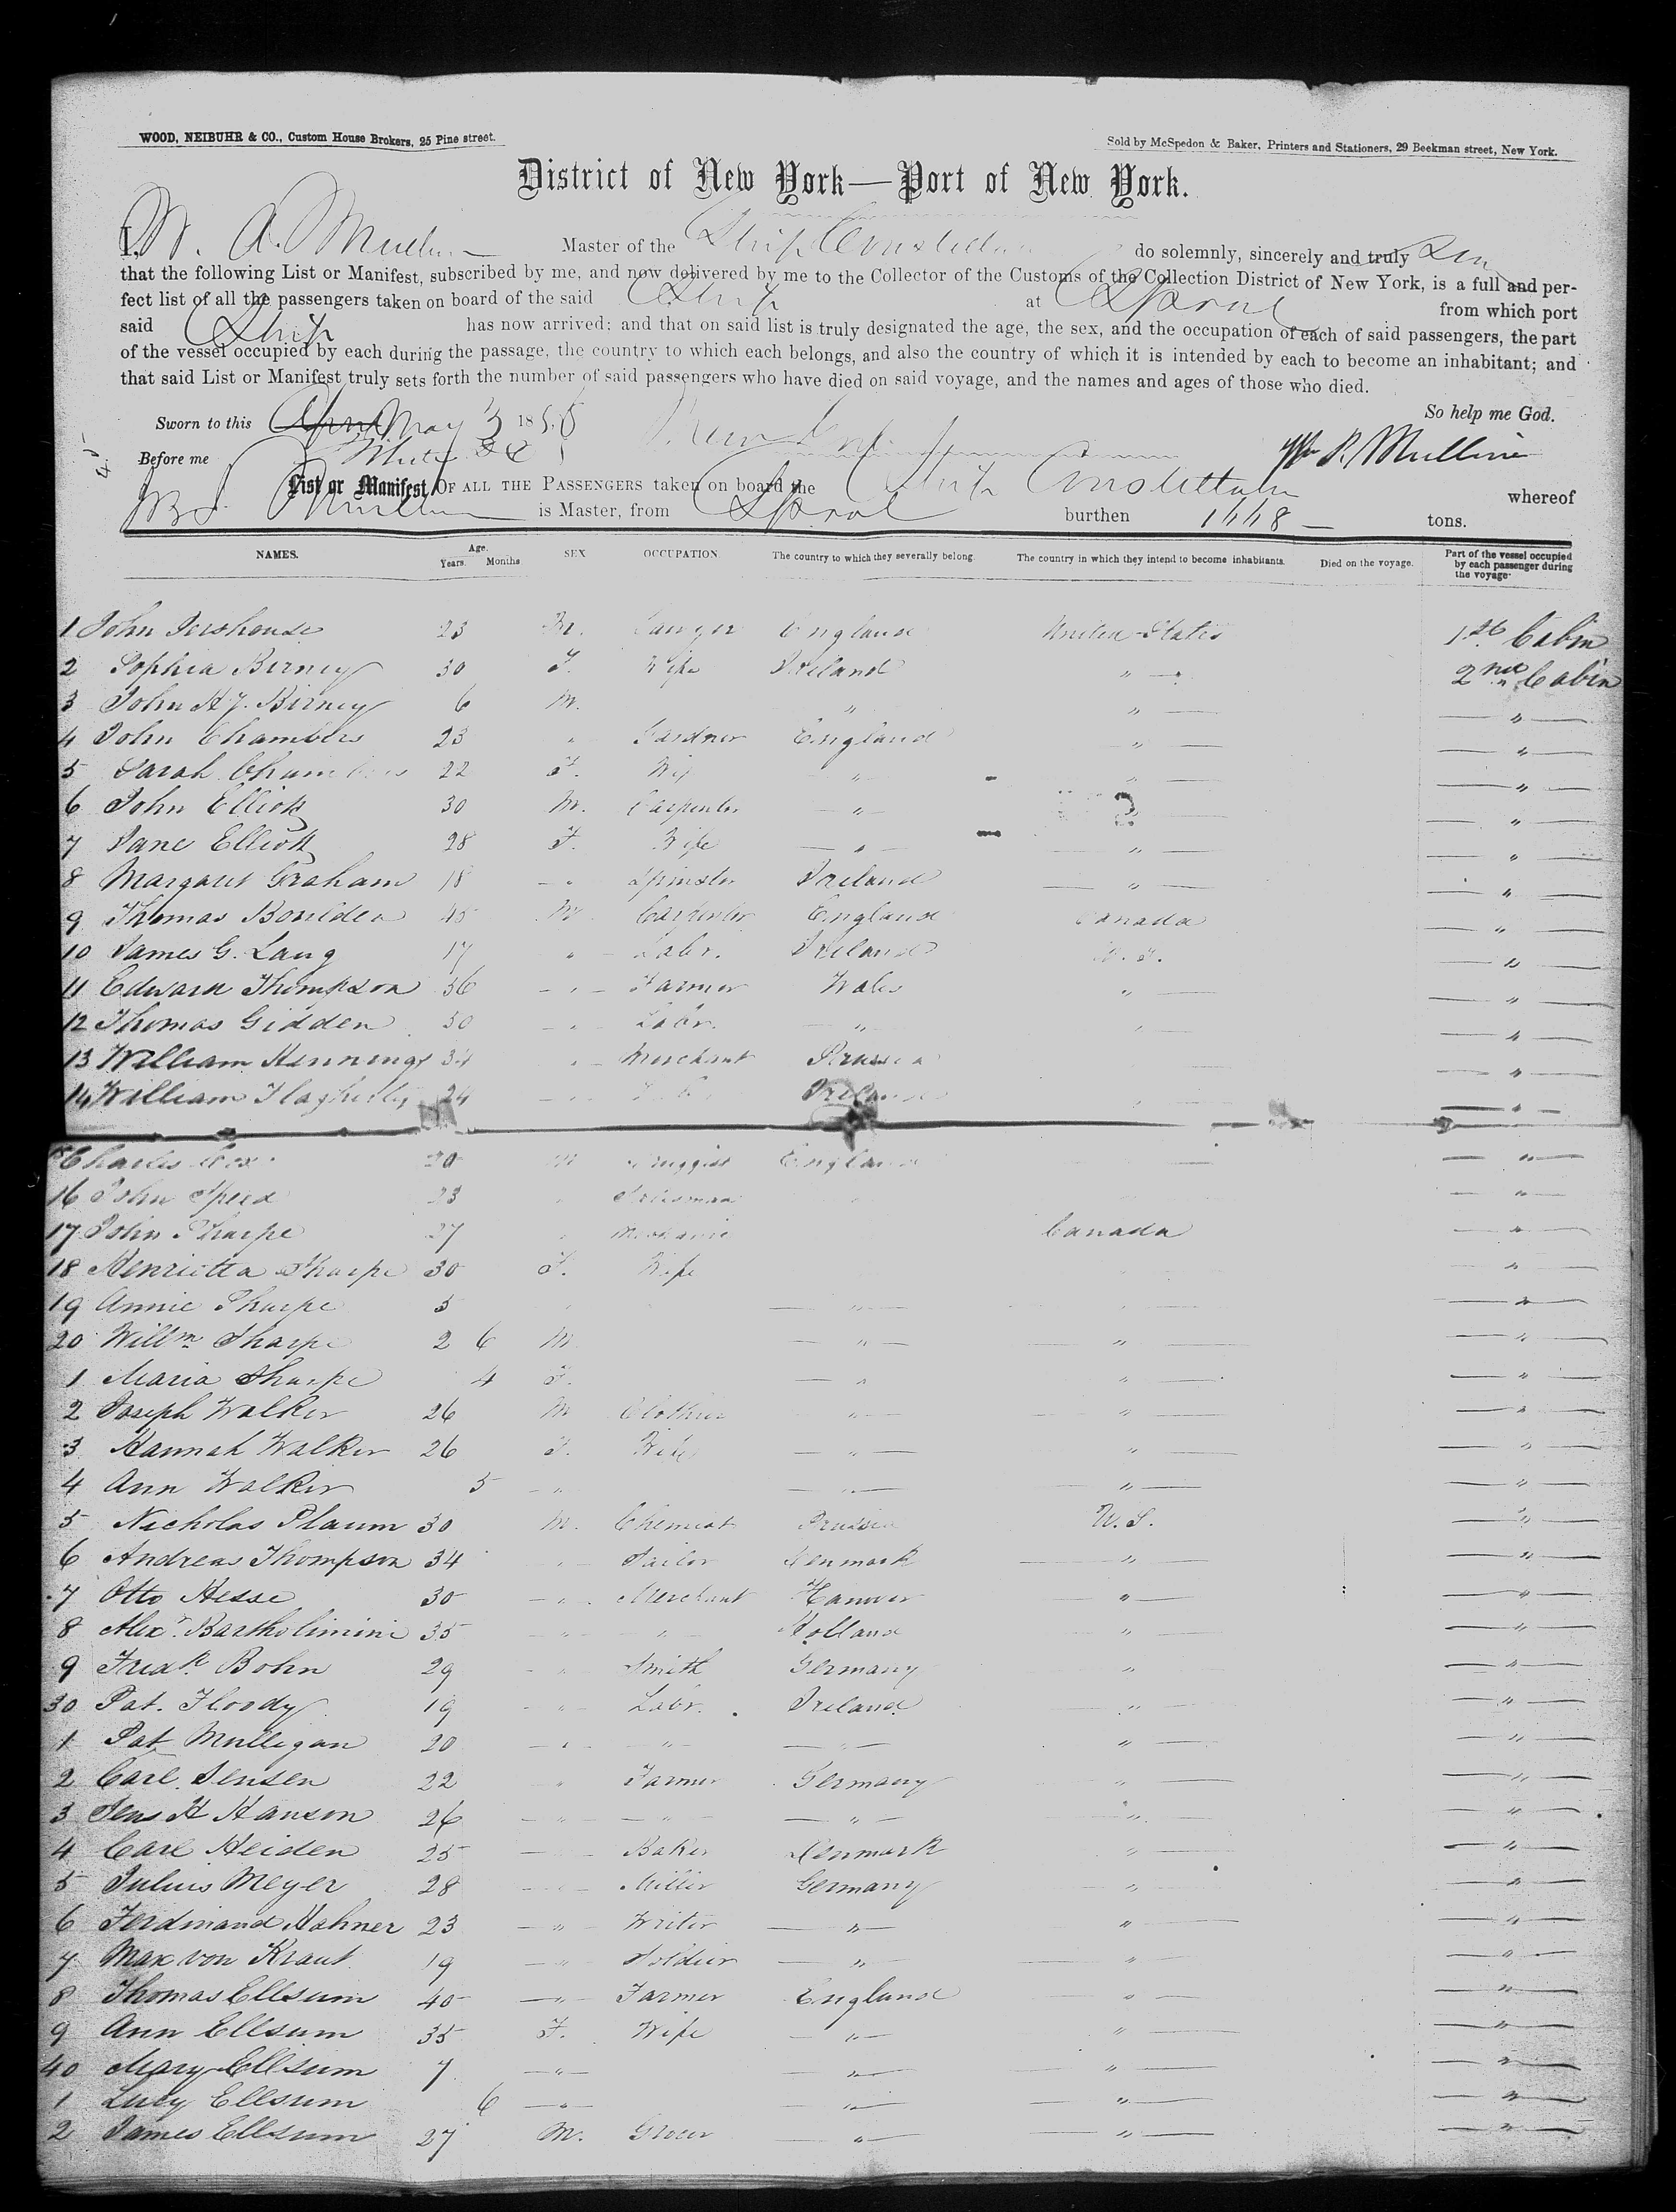 WOOD, NEIBUHR & CO., Custom House Brokers, 25 Pine street.
Sold by McSpedon & Baker, Printers and Stationers, 29 Beekman street, New York.
District of New York—Port of New York.
I, Master of the Ship Constellation do solemnly, sincerely and truly
that the following List or Manifest, subscribed by me, and now delivered by me to the Collector of the Customs of the Collection District of New York, is a full and per-
fect list of all the passengers taken on board of the said Ship at Lpool from which port
said Ship has now arrived; and that on said list is truly designated the age, the sex, and the occupation of each of said passengers, the part
of the vessel occupied by each during the passage, the country to which each belongs, and also the country of which it is intended by each to become an inhabitant; and
that said List or Manifest truly sets forth the number of said passengers who have died on said voyage, and the names and ages of those who died.
So help me God.
Sworn to this May 3 185
Before me
List or Manifest OF ALL THE PASSENGERS taken on board the Ship Constellation whereof
is Master, from Lpool burthen tons.
NAMES. Age. Years. Months SEX OCCUPATION. The country to which they severally belong. The country in which they intend to become inhabitants. Died on the voyage. Part of the vessel occupied by each passenger during the voyage.
1 John 23 M. England United States 1st Cabin
2 Sophia Birney 30 F. Wife Ireland " 2nd Cabin
3 John H J. Birney 6 M. " " "
4 John Chambers 23 " Gardner England " "
5 Sarah Chambers 22 F. Wife " " "
6 John Elliott 30 M. Carpenter " "
7 Jane Elliott 28 F. Wife " " "
8 Margaret Graham 18 " Spinster Ireland " "
9 Thomas Boulden 45 M Carpenter England Canada "
10 James G. Lang 17 " Labr. Ireland U.S. "
11 Edward Thompson 36 " Farmer Wales " "
12 Thomas Gidden 30 " Labr. " " "
13 William Hennings 34 " Merchant Prussia "
14 William 24 " Ireland "
15 Charles Cox 20 M Druggist England "
16 John Speed 23 " "
17 John Sharpe 27 " Mechanic Canada "
18 Henrietta Sharpe 30 F. Wife "
19 Annie Sharpe 5 " " "
20 Willm Sharpe 2 6 M " " "
1 Maria Sharpe 4 F. " " "
2 Joseph Walker 26 M Clothier " " "
3 Hannah Walker 26 F. Wife " " "
4 Ann Walker 5 " " " "
5 Nicholas Plaum 30 M. Chemist Prussia U.S. "
6 Andreas Thompson 34 " Tailor Denmark " "
7 Otto Hesse 30 " Merchant Hanover " "
8 Alexr. Bartholimini 35 " " Holland " "
9 Fredk. Bohn 29 " Smith Germany " "
30 Pat. Floody 19 " Labr. Ireland " "
1 Pat Mulligan 20 " " " " "
2 Carl Jensen 22 " Farmer Germany " "
3 Jens H Hanson 26 " " " " "
4 Carl Heiden 25 Baker Denmark " "
5 Julius Meyer 28 " Miller Germany " "
6 Ferdinand Hahner 23 " Writer " " "
7 Max von Kraut 19 " Soldier " " "
8 Thomas Ellsum 40 " Farmer England " "
9 Ann Ellsum 35 F. Wife " " "
40 Mary Ellsum 7 " " " "
1 Lucy Ellsum 6 " " " "
2 James Ellsum 27 M. Grocer " " "